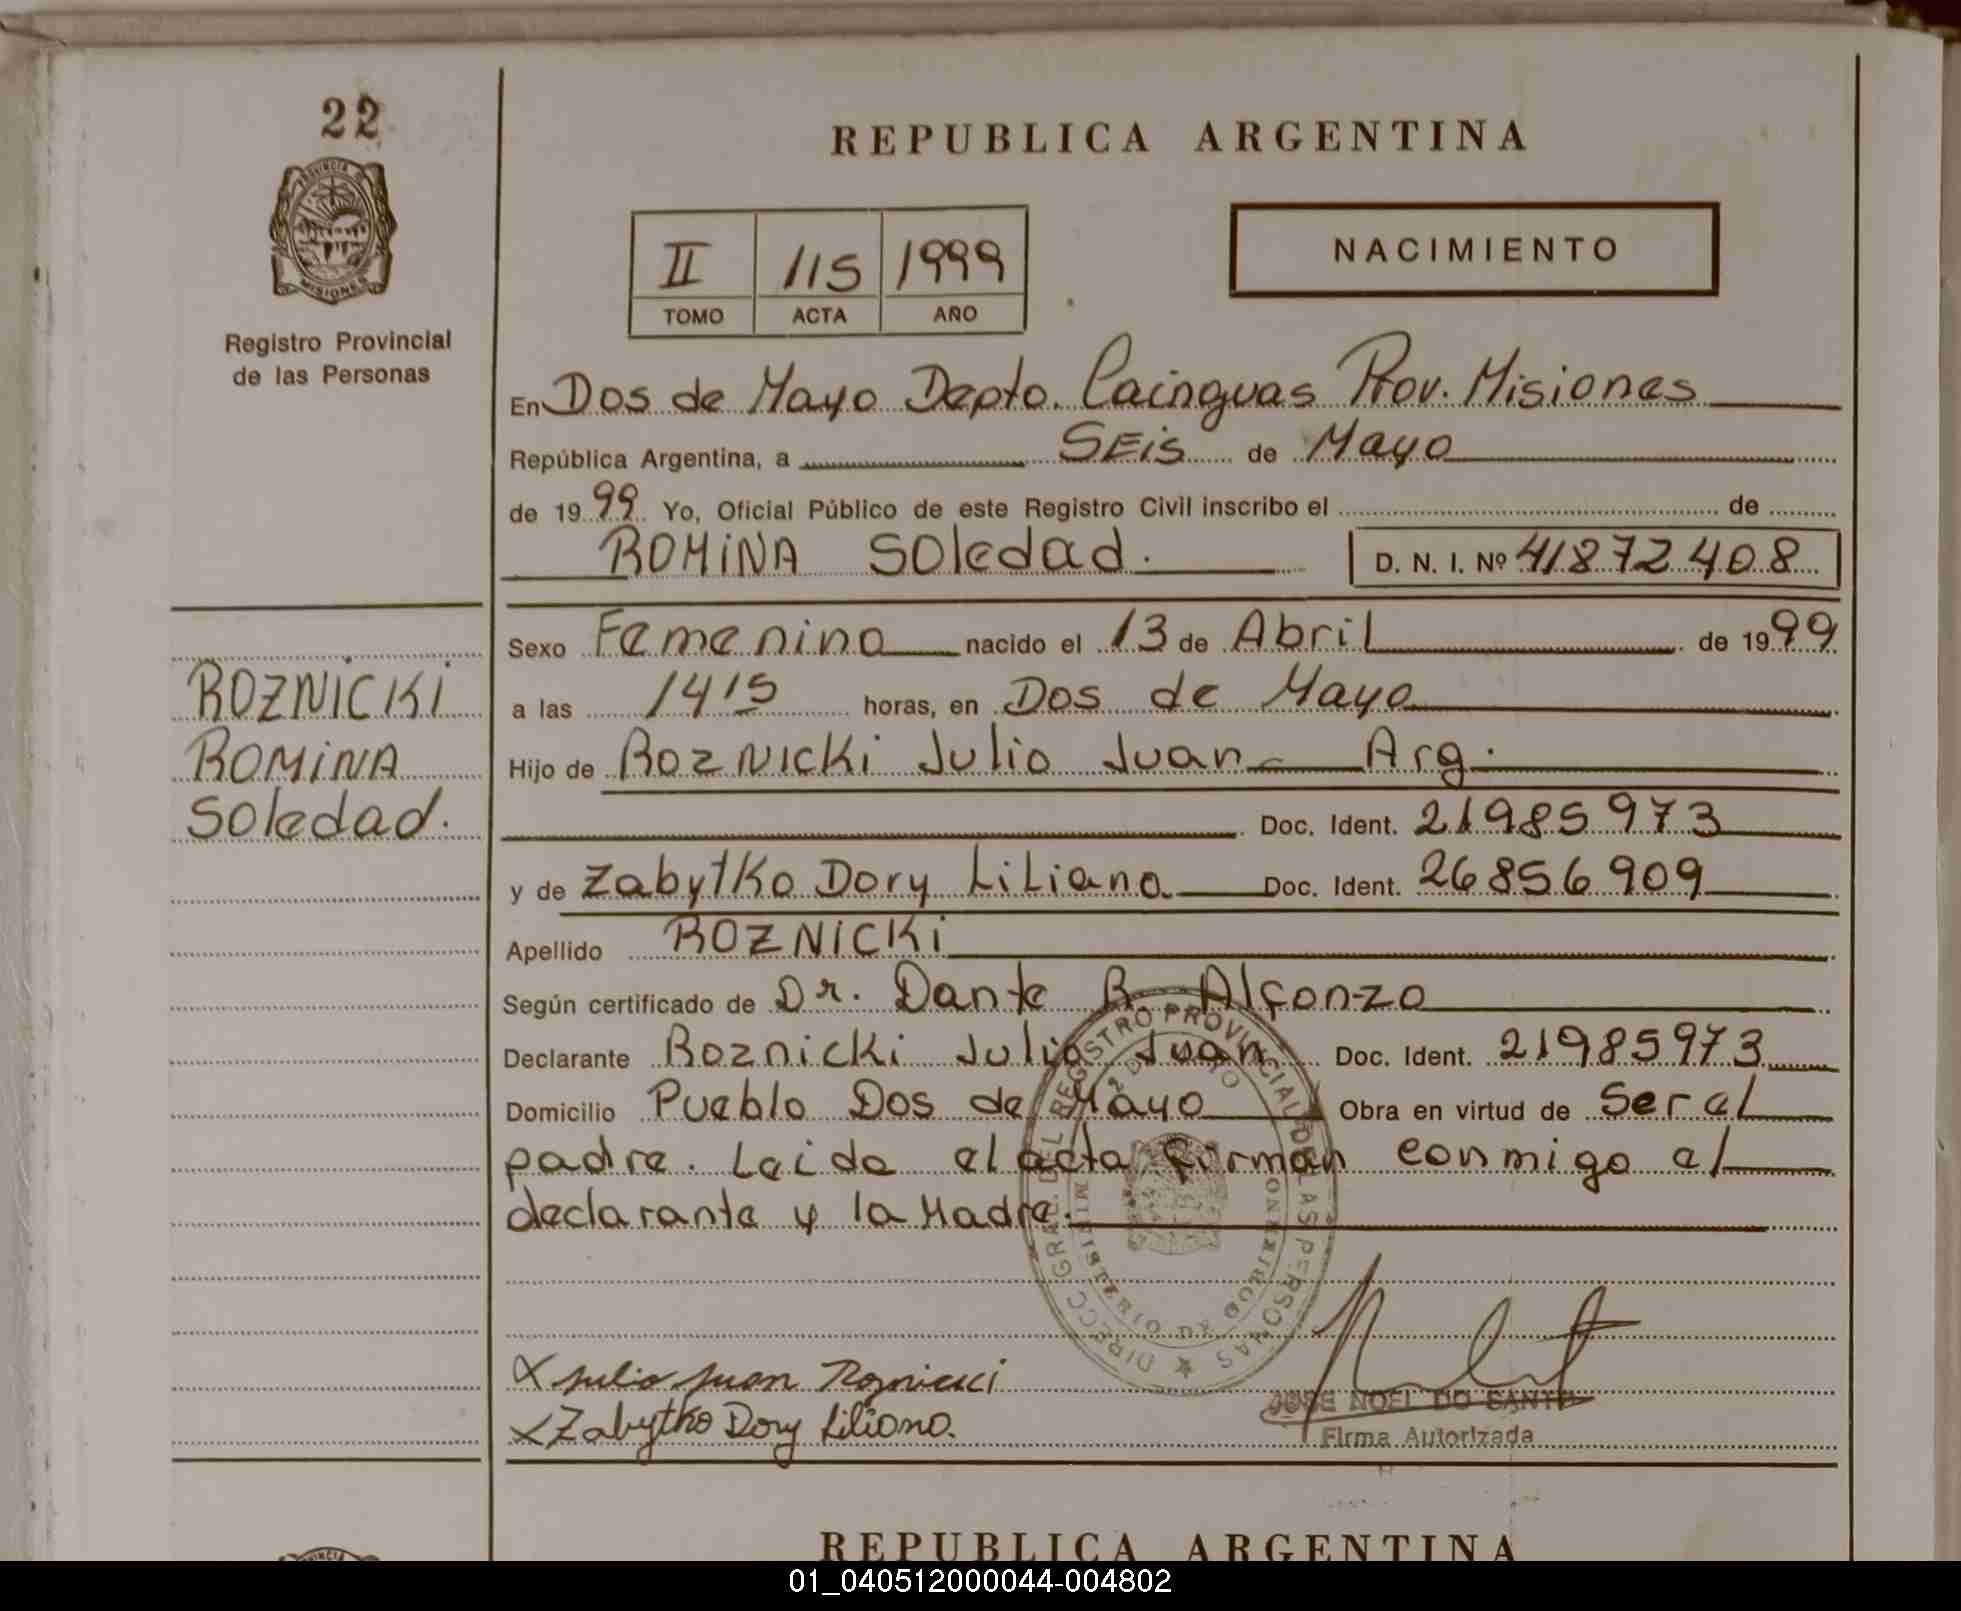 22
REPUBLICA ARGENTINA
PROVINCIA DE
MISIONES
Registro Provincial
de las Personas
II 115 1999
TOMO ACTA AÑO
NACIMIENTO
En Dos de Mayo Depto. Cainguas Prov. Misiones
República Argentina, a SEis de Mayo
de 1999 Yo, Oficial Público de este Registro Civil inscribo el de
ROMiNA Soledad. D. N. I. Nº 41872408
Sexo Femenino nacido el 13 de Abril de 1999
a las 1415 horas, en Dos de Mayo
Hijo de Roznicki Julio Juan Arg.
Doc. Ident. 21985973
y de Zabytko Dory Liliana Doc. Ident. 26856909
Apellido ROZNICKi
Según certificado de Dr. Dante R. Alfonzo
Declarante Roznicki Julio Juan Doc. Ident. 21985973
Domicilio Pueblo Dos de Mayo Obra en virtud de Ser el
padre. Leida el acta firman conmigo el
declarante y la Madre.
ROZNiCKi
ROMiNA
Soledad.
DIRECC GRAL DEL REGISTRO PROVINCIAL DE LAS PERSONAS
MINISTERIO DE GOBIERNO
X Julio Juan Roznicki
X Zabytko Dory Liliana.
JOSE NOEL DO SANTO
Firma Autorizada
REPUBLICA ARGENTINA
01_040512000044-004802